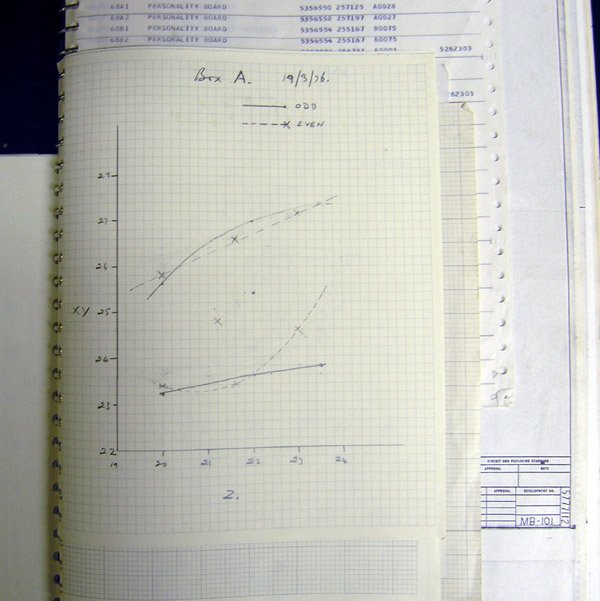 68A1 PERSONALITY BOARD 5356550 257125 A0028
68A2 PERSONALITY BOARD 5356552 257197 A0027
68B1 PERSONALITY BOARD 5356554 255167 B0075
68B2 PERSONALITY BOARD 5356554 255167 B0075
5262303
62303
Box A. 19/3/76.
ODD
EVEN
27
27
26
XY 25
24
23
22
19 20 21 22 23 24
Z.
CIRCUIT AND PACKAGING STANDARD
APPROVAL DATE
APPROVAL DEVELOPMENT NO.
MB-101
5777112